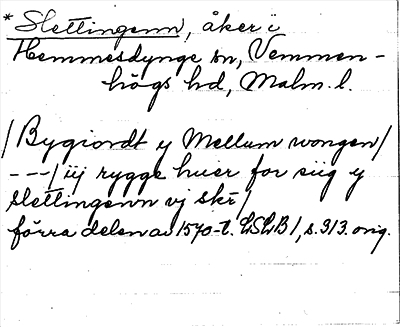 * Slettingenn, åker i
Hemmesdynge sn, Vemmen-
högs hd, Malm. l.
/Bygiordt y Mellum wongen/
---/iij rygge huer for siig y
slettingenn vj skr/
förra delen av 1570-t. LSLB 1, s. 313. orig.